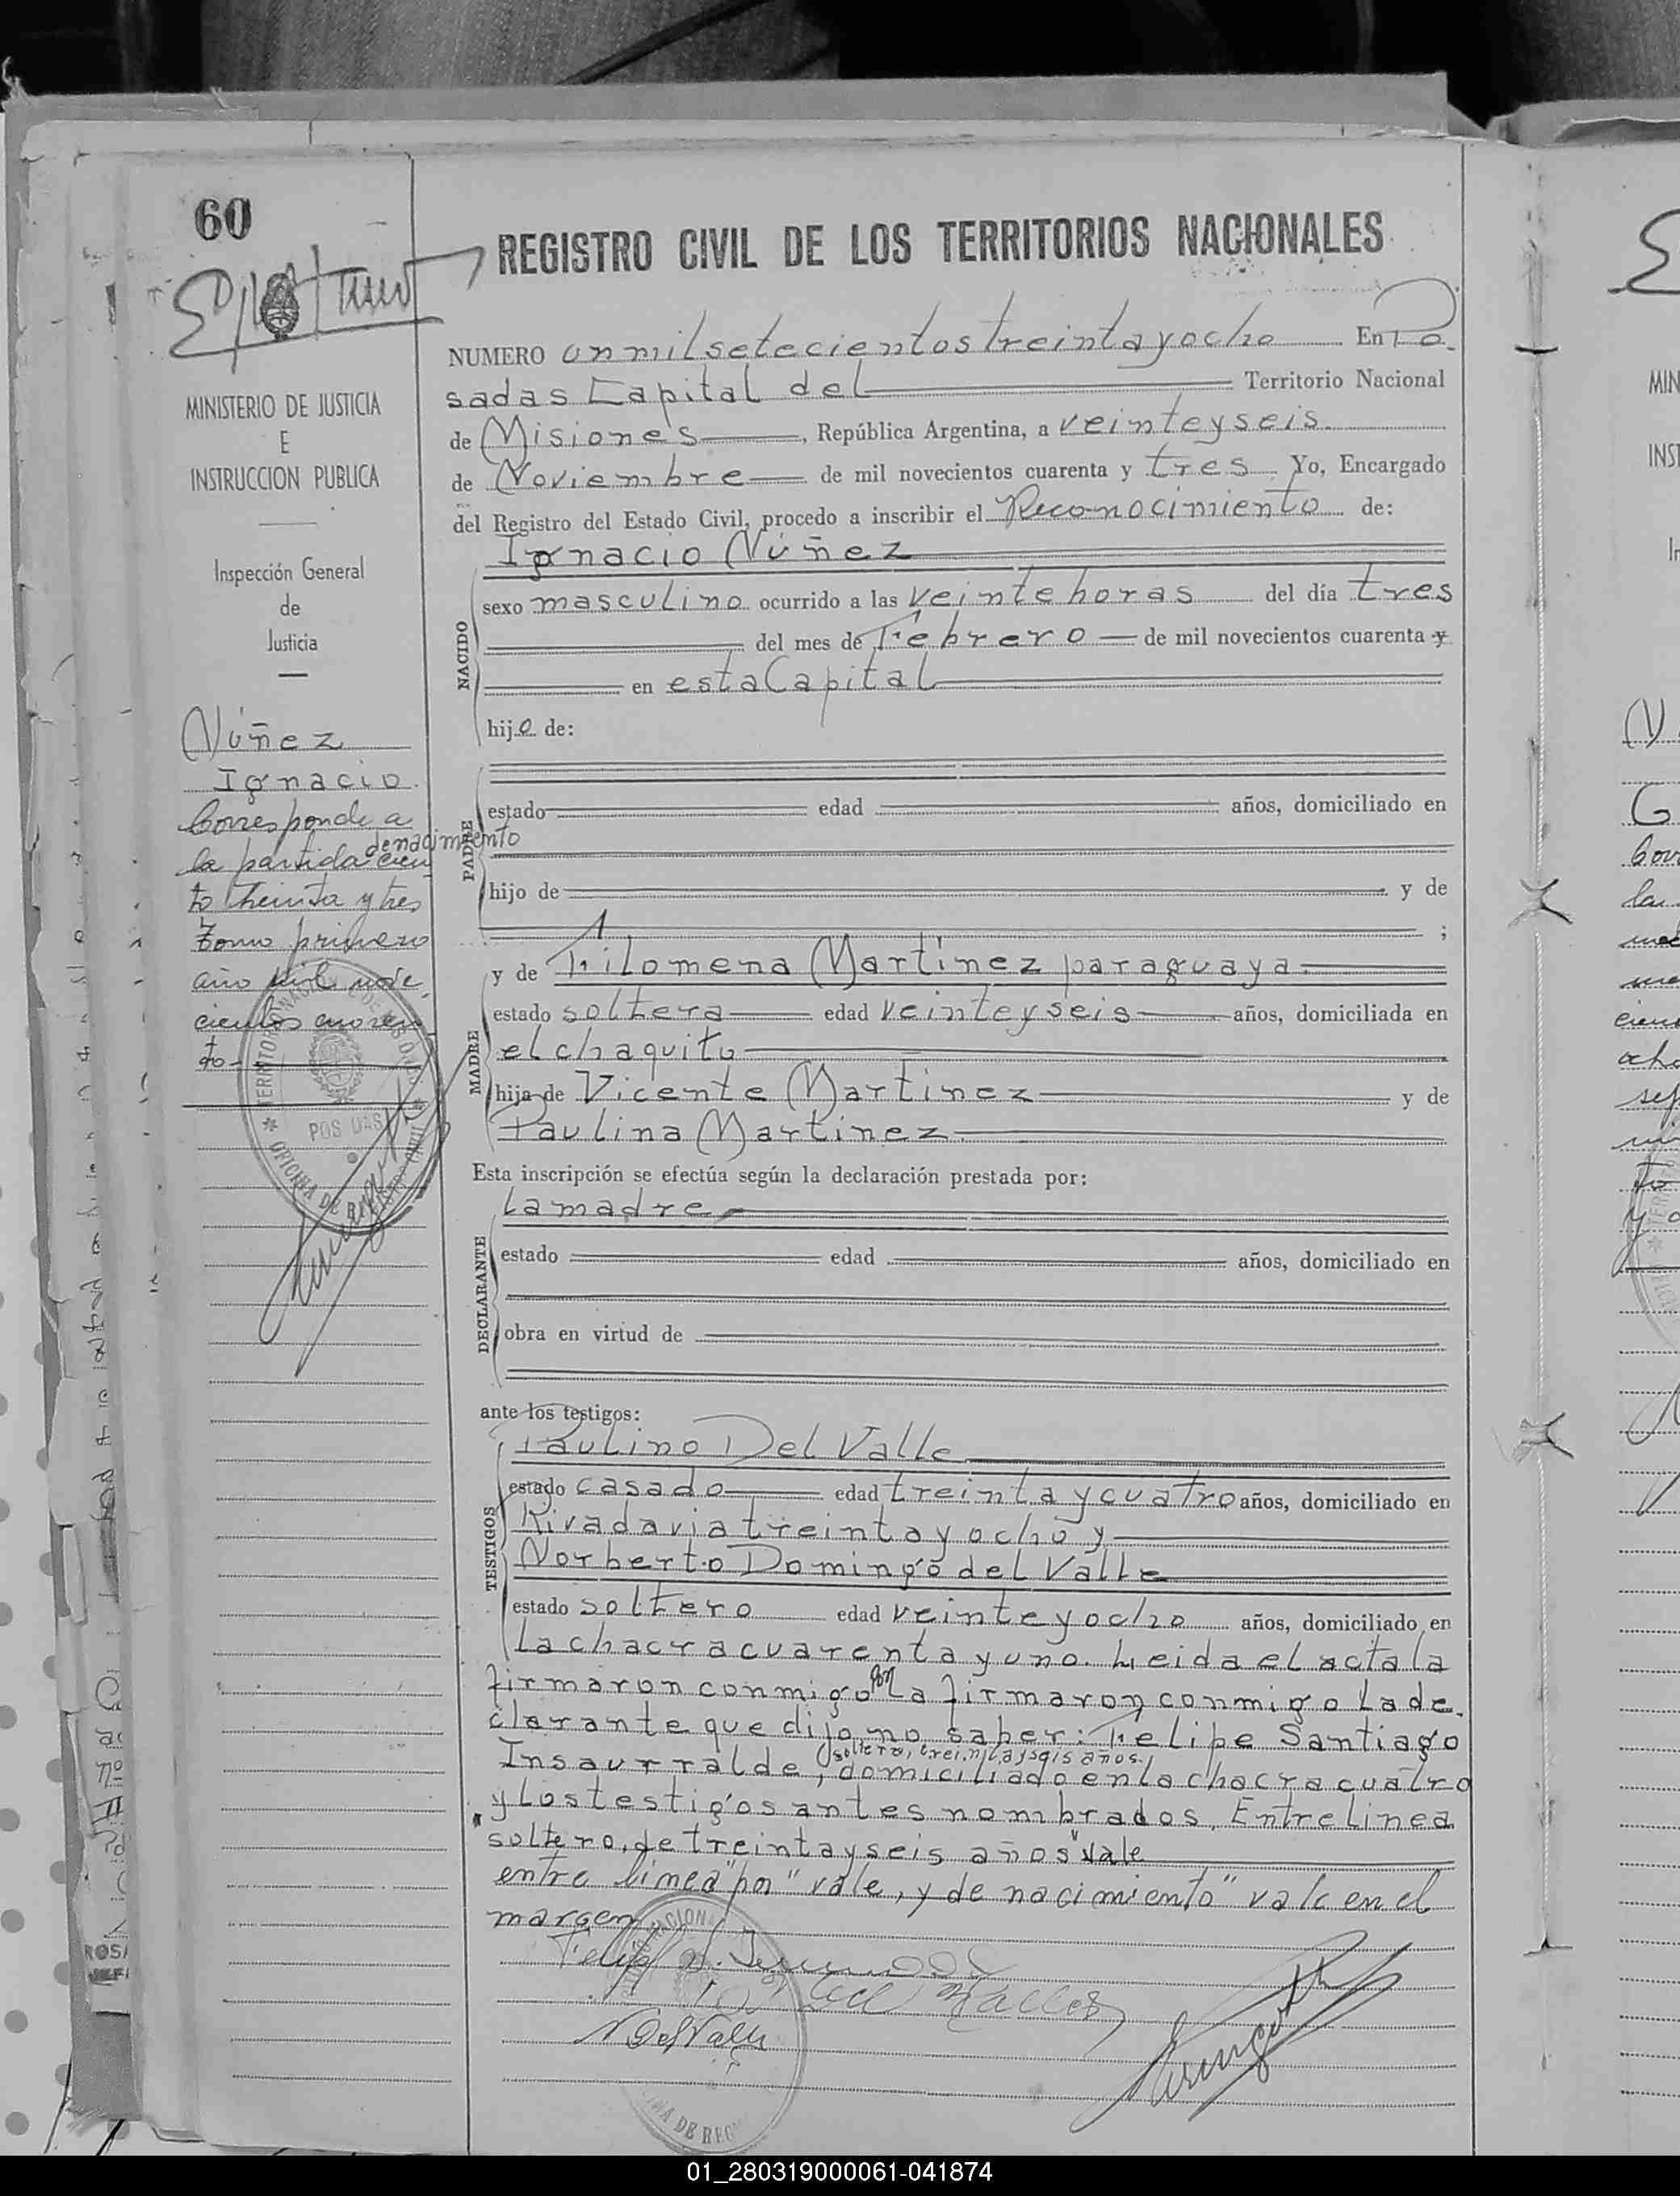 60
REGISTRO CIVIL DE LOS TERRITORIOS NACIONALES
MINISTERIO DE JUSTICIA
E
INSTRUCCION PUBLICA
Inspección General
de
Justicia
Núñez
Ignacio
Corresponde a
de nacimiento
la partida cien
to treinta y tres
tomo primero
año mil nove
cientos cuaren
ta
NUMERO un mil setecientos treinta y ocho En Po
sadas Capital del Territorio Nacional
de Misiones, República Argentina, a veinteyseis
de Noviembre de mil novecientos cuarenta y tres Yo, Encargado
del Registro del Estado Civil, procedo a inscribir el Reconocimiento de:
Ignacio Núñez
NACIDO
sexo masculino ocurrido a las veinte horas del día tres
del mes de Febrero de mil novecientos cuarenta y
en esta Capital
hijo de:
PADRE
estado edad años, domiciliado en
hijo de y de
;
MADRE
y de Filomena Martínez paraguaya.
estado soltera edad veinteyseis años, domiciliada en
el chaquito
hija de Vicente Martinez y de
Paulina Martinez
Esta inscripción se efectúa según la declaración prestada por:
La madre
DECLARANTE
estado edad años, domiciliado en
obra en virtud de
ante los testigos:
TESTIGOS
Paulino Del Valle
estado casado edad treinta y cuatro años, domiciliado en
Rivadavia treinta y ocho y
Norberto Domingo del Valle
estado soltero edad veinte y ocho años, domiciliado en
La chacra cuarenta y uno. Leida el acta la
firmaron conmigo por La firmaron conmigo La de
clarante que dijo no saber: Felipe Santiago
soltero, treinta y seis años,
Insaurralde, domiciliado en la chacra cuatro
y Los testigos antes nombrados. Entrelinea
"soltero, de treinta y seis años" vale
entre linea "por" vale, y de nacimiento" vale en el
margen
N Del Valle
POSADAS
01_280319000061-041874